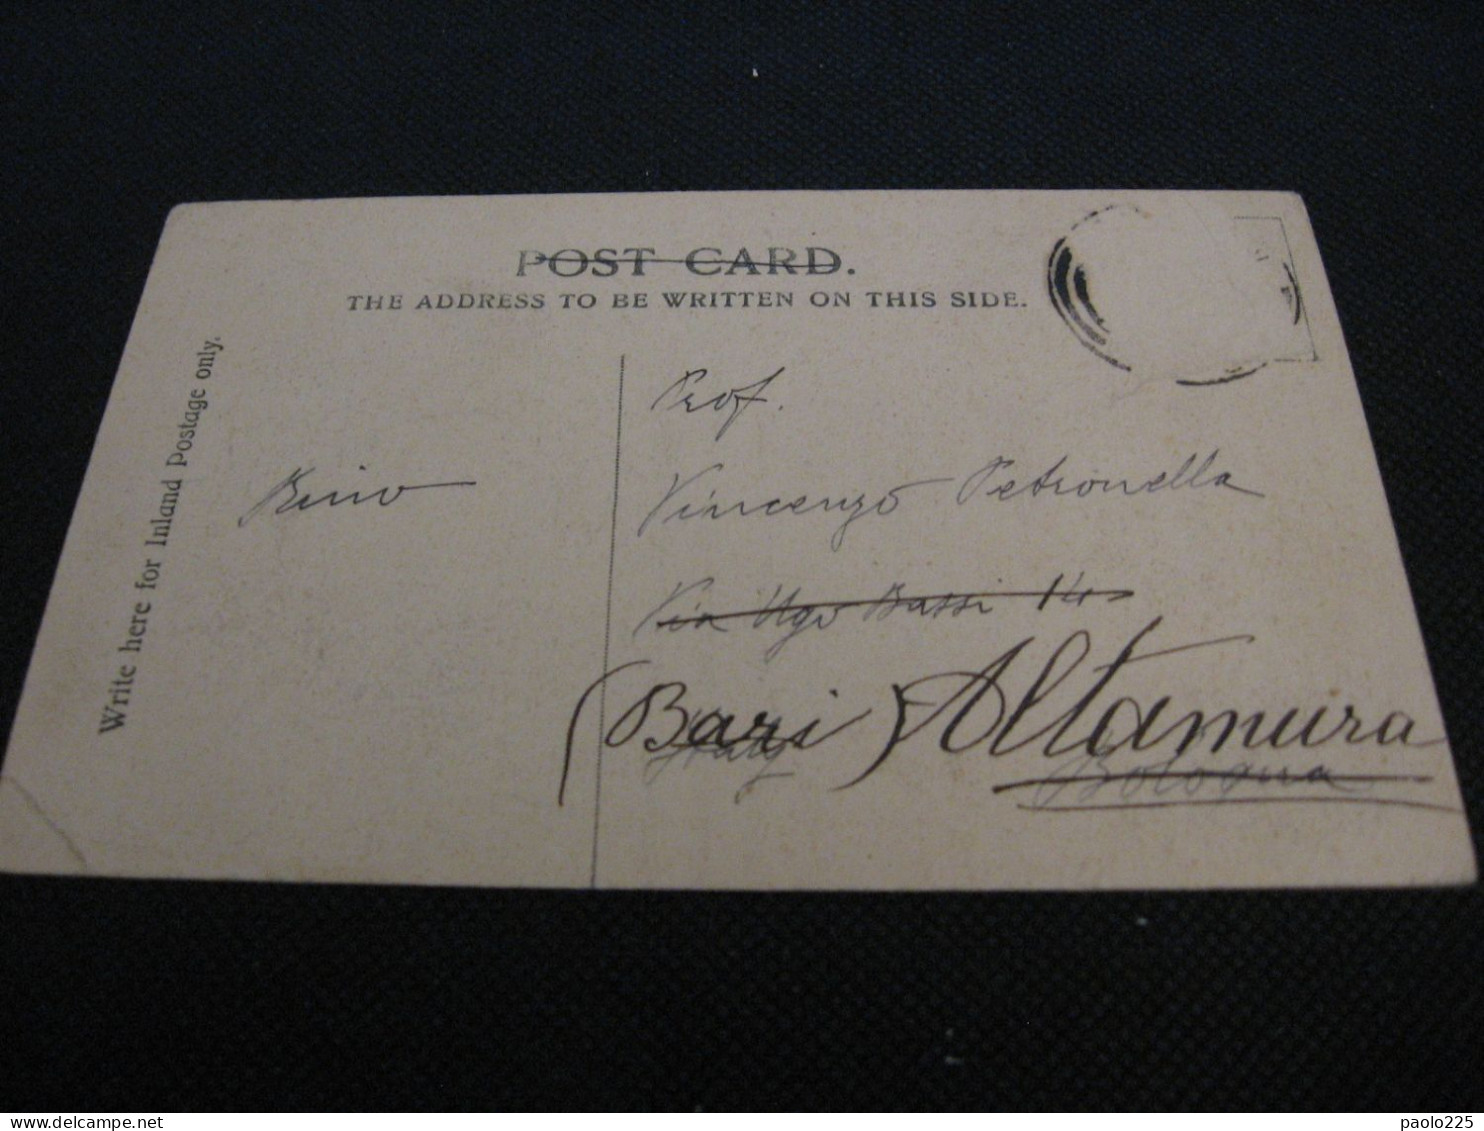 POST CARD.
THE ADDRESS TO BE WRITTEN ON THIS SIDE.
Write here for Inland Postage only.
Prof.
Vincenzo Petronella
Via Ugo Bassi 14
(Bari) Altamura
Italy
Bologna
paolo225